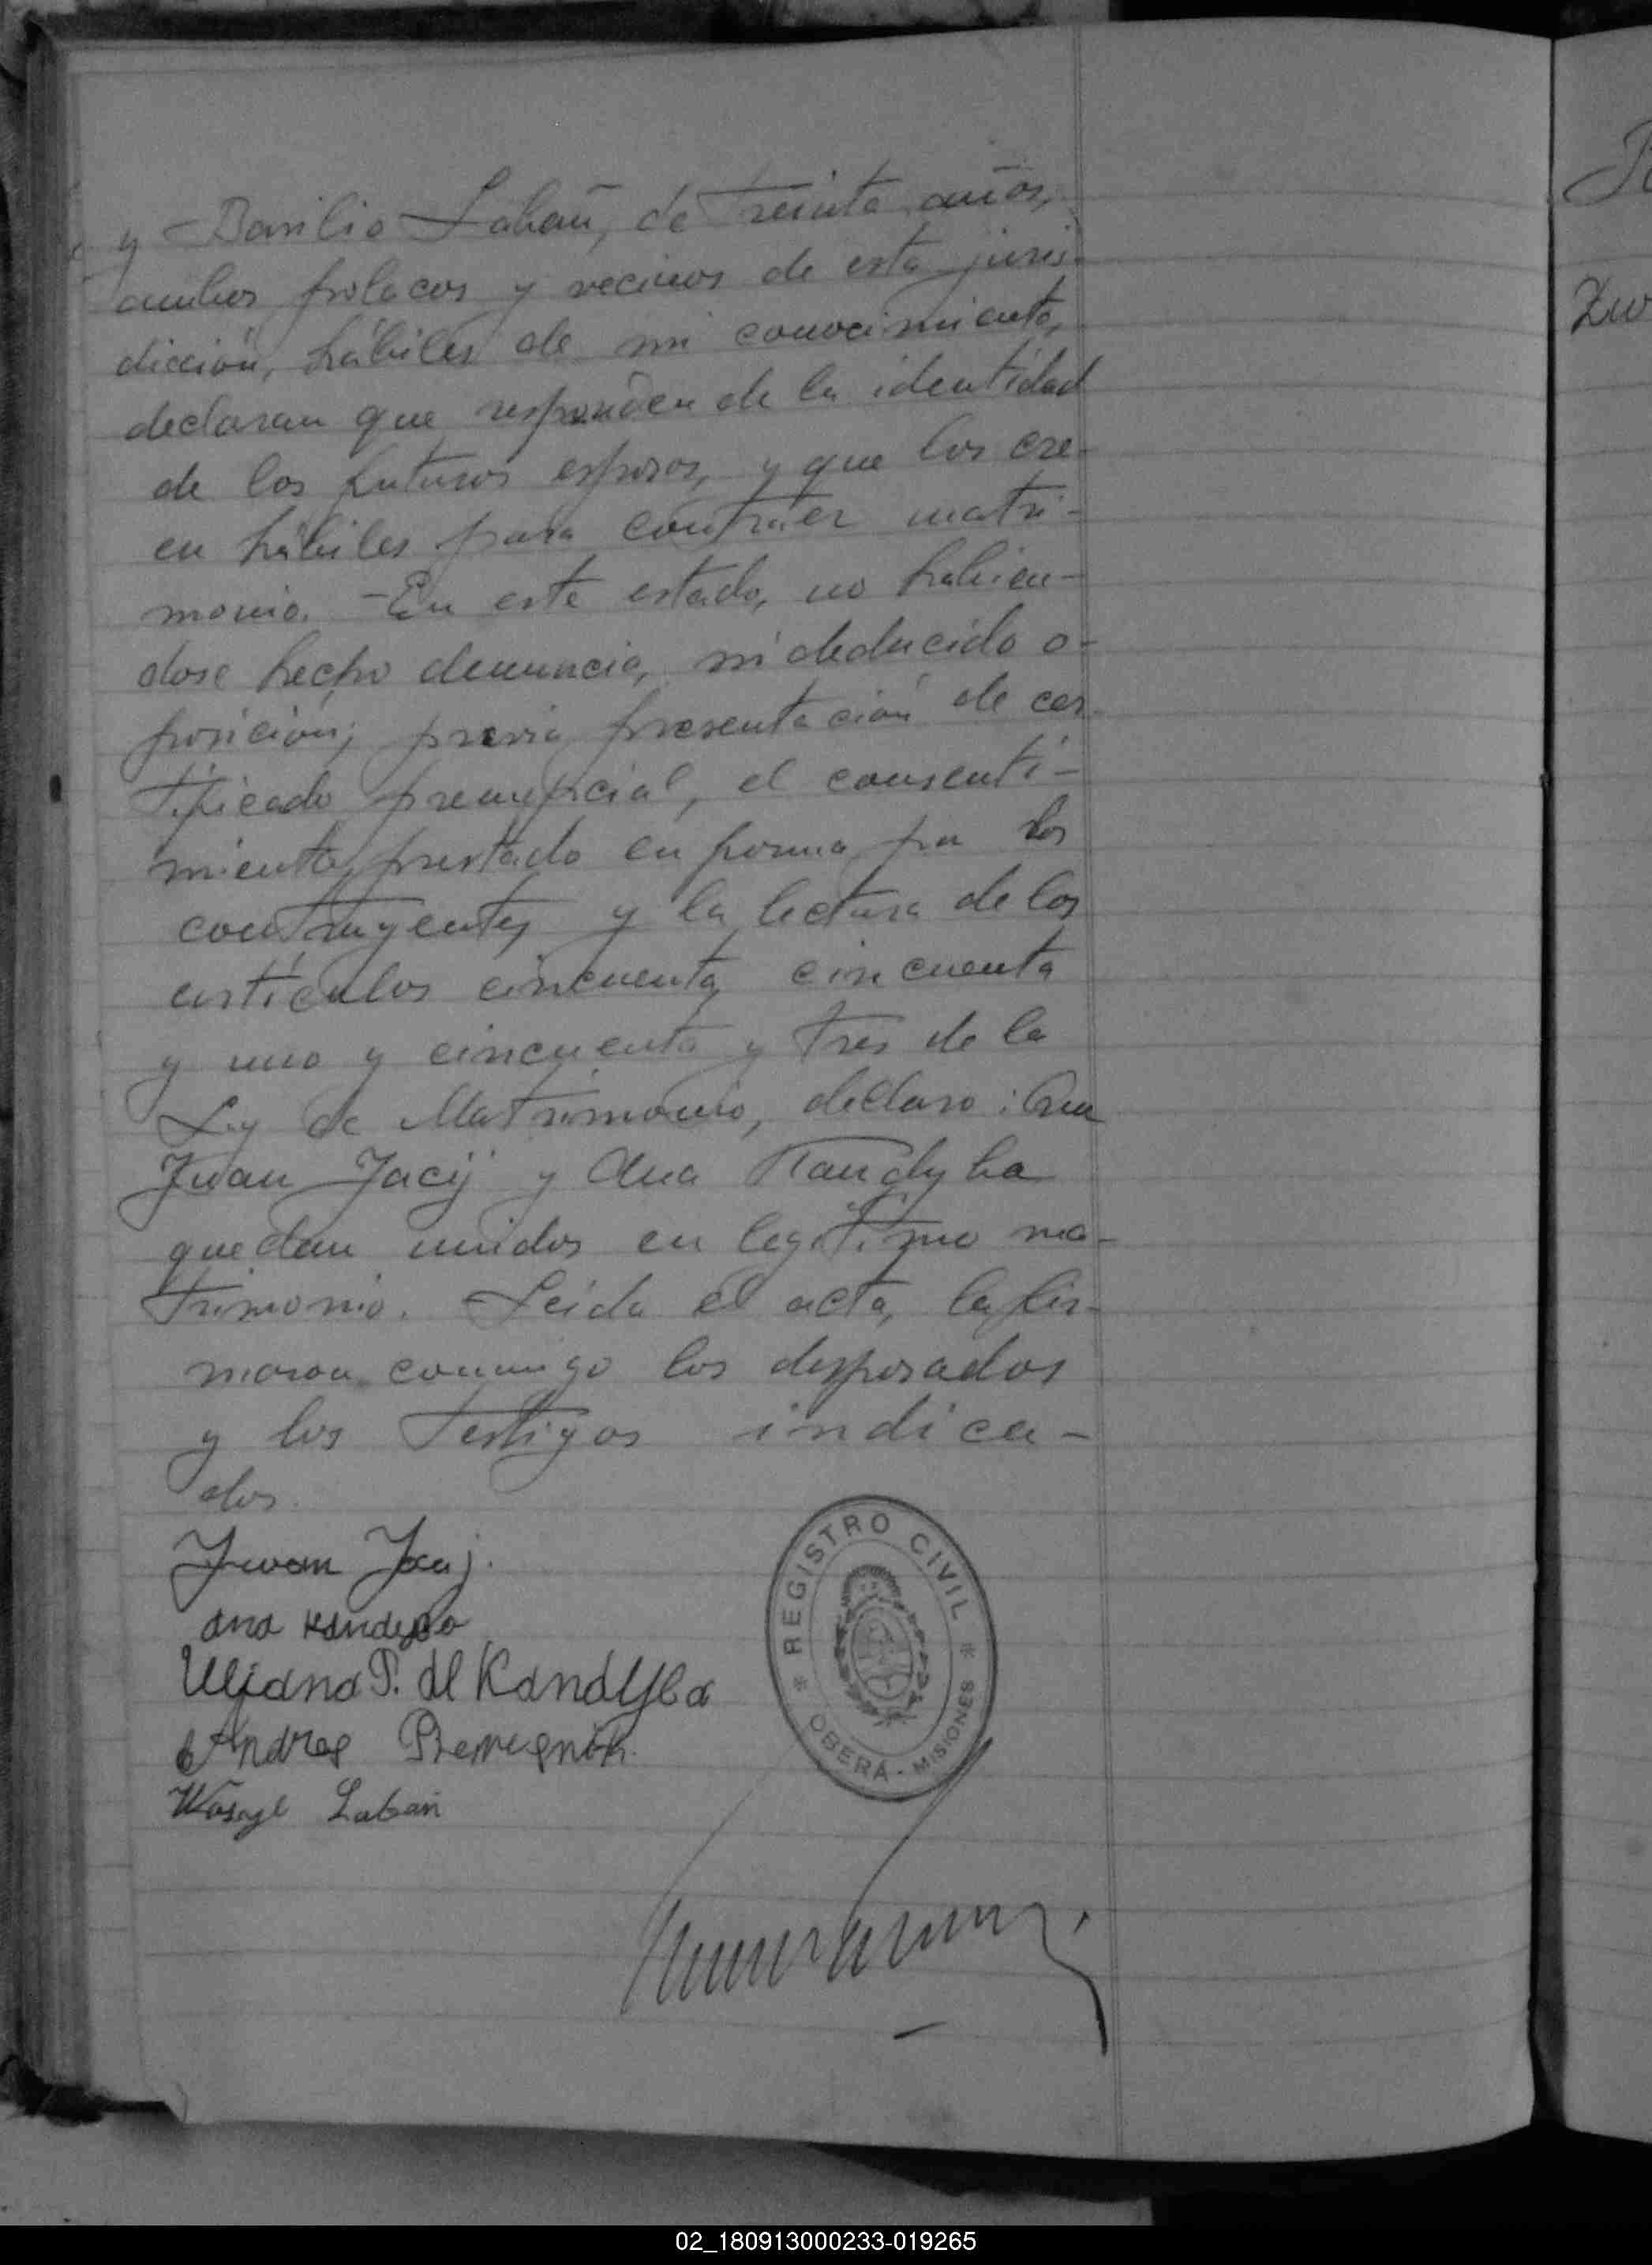 y Basilio Labañ, de treinta años,
ambos polacos y vecinos de esta juris-
dicción, hábiles de mi conocimiento,
declaran que responden de la identidad
de los futuros esposos, y que los cre-
en hábiles para contraer matri-
monio. - En este estado, no habien-
dose hecho denuncia, ni deducido o-
posición; previa presentación de cer-
tificado prenupcial, el consenti-
miento prestado en forma por los
contrayentes y la lectura de los
artículos cincuenta, cincuenta
y uno y cincuenta y tres de la
Ley de Matrimonio, declaro: Que
Juan Jacij y Ana Kandyba
quedan unidos en legítimo ma-
trimonio. Leída el acta, la fir-
maron conmigo los desposados
y los testigos indica-
dos.
Jwan Jacij.
ana Kandyba
Uljana P. de Kandyba
Andres
Wasyl Laban
REGISTRO CIVIL
OBERÁ - MISIONES
02_180913000233-019265